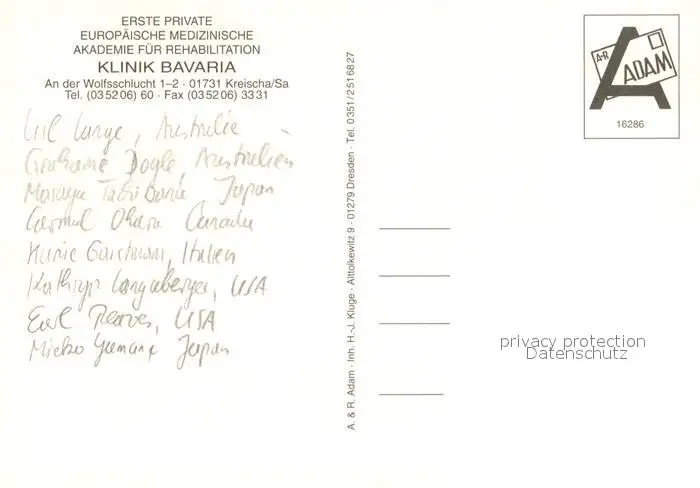 ERSTE PRIVATE
EUROPÄISCHE MEDIZINISCHE
AKADEMIE FÜR REHABILITATION
KLINIK BAVARIA
An der Wolfsschlucht 1–2 · 01731 Kreischa/Sa
Tel. (03 52 06) 60 · Fax (03 52 06) 33 31
Lange, Australie
Grahame Doyle, Australien
Japan
Carmel Ohara Canada
Italien
Kathryn USA
Earl Reaves, USA
Mieko Japan
A. & R. Adam · Inh. H.-J. Kluge · Alttolkewitz 9 · 01279 Dresden · Tel. 0351/2516827
A+R
ADAM
16286
privacy protection
Datenschutz